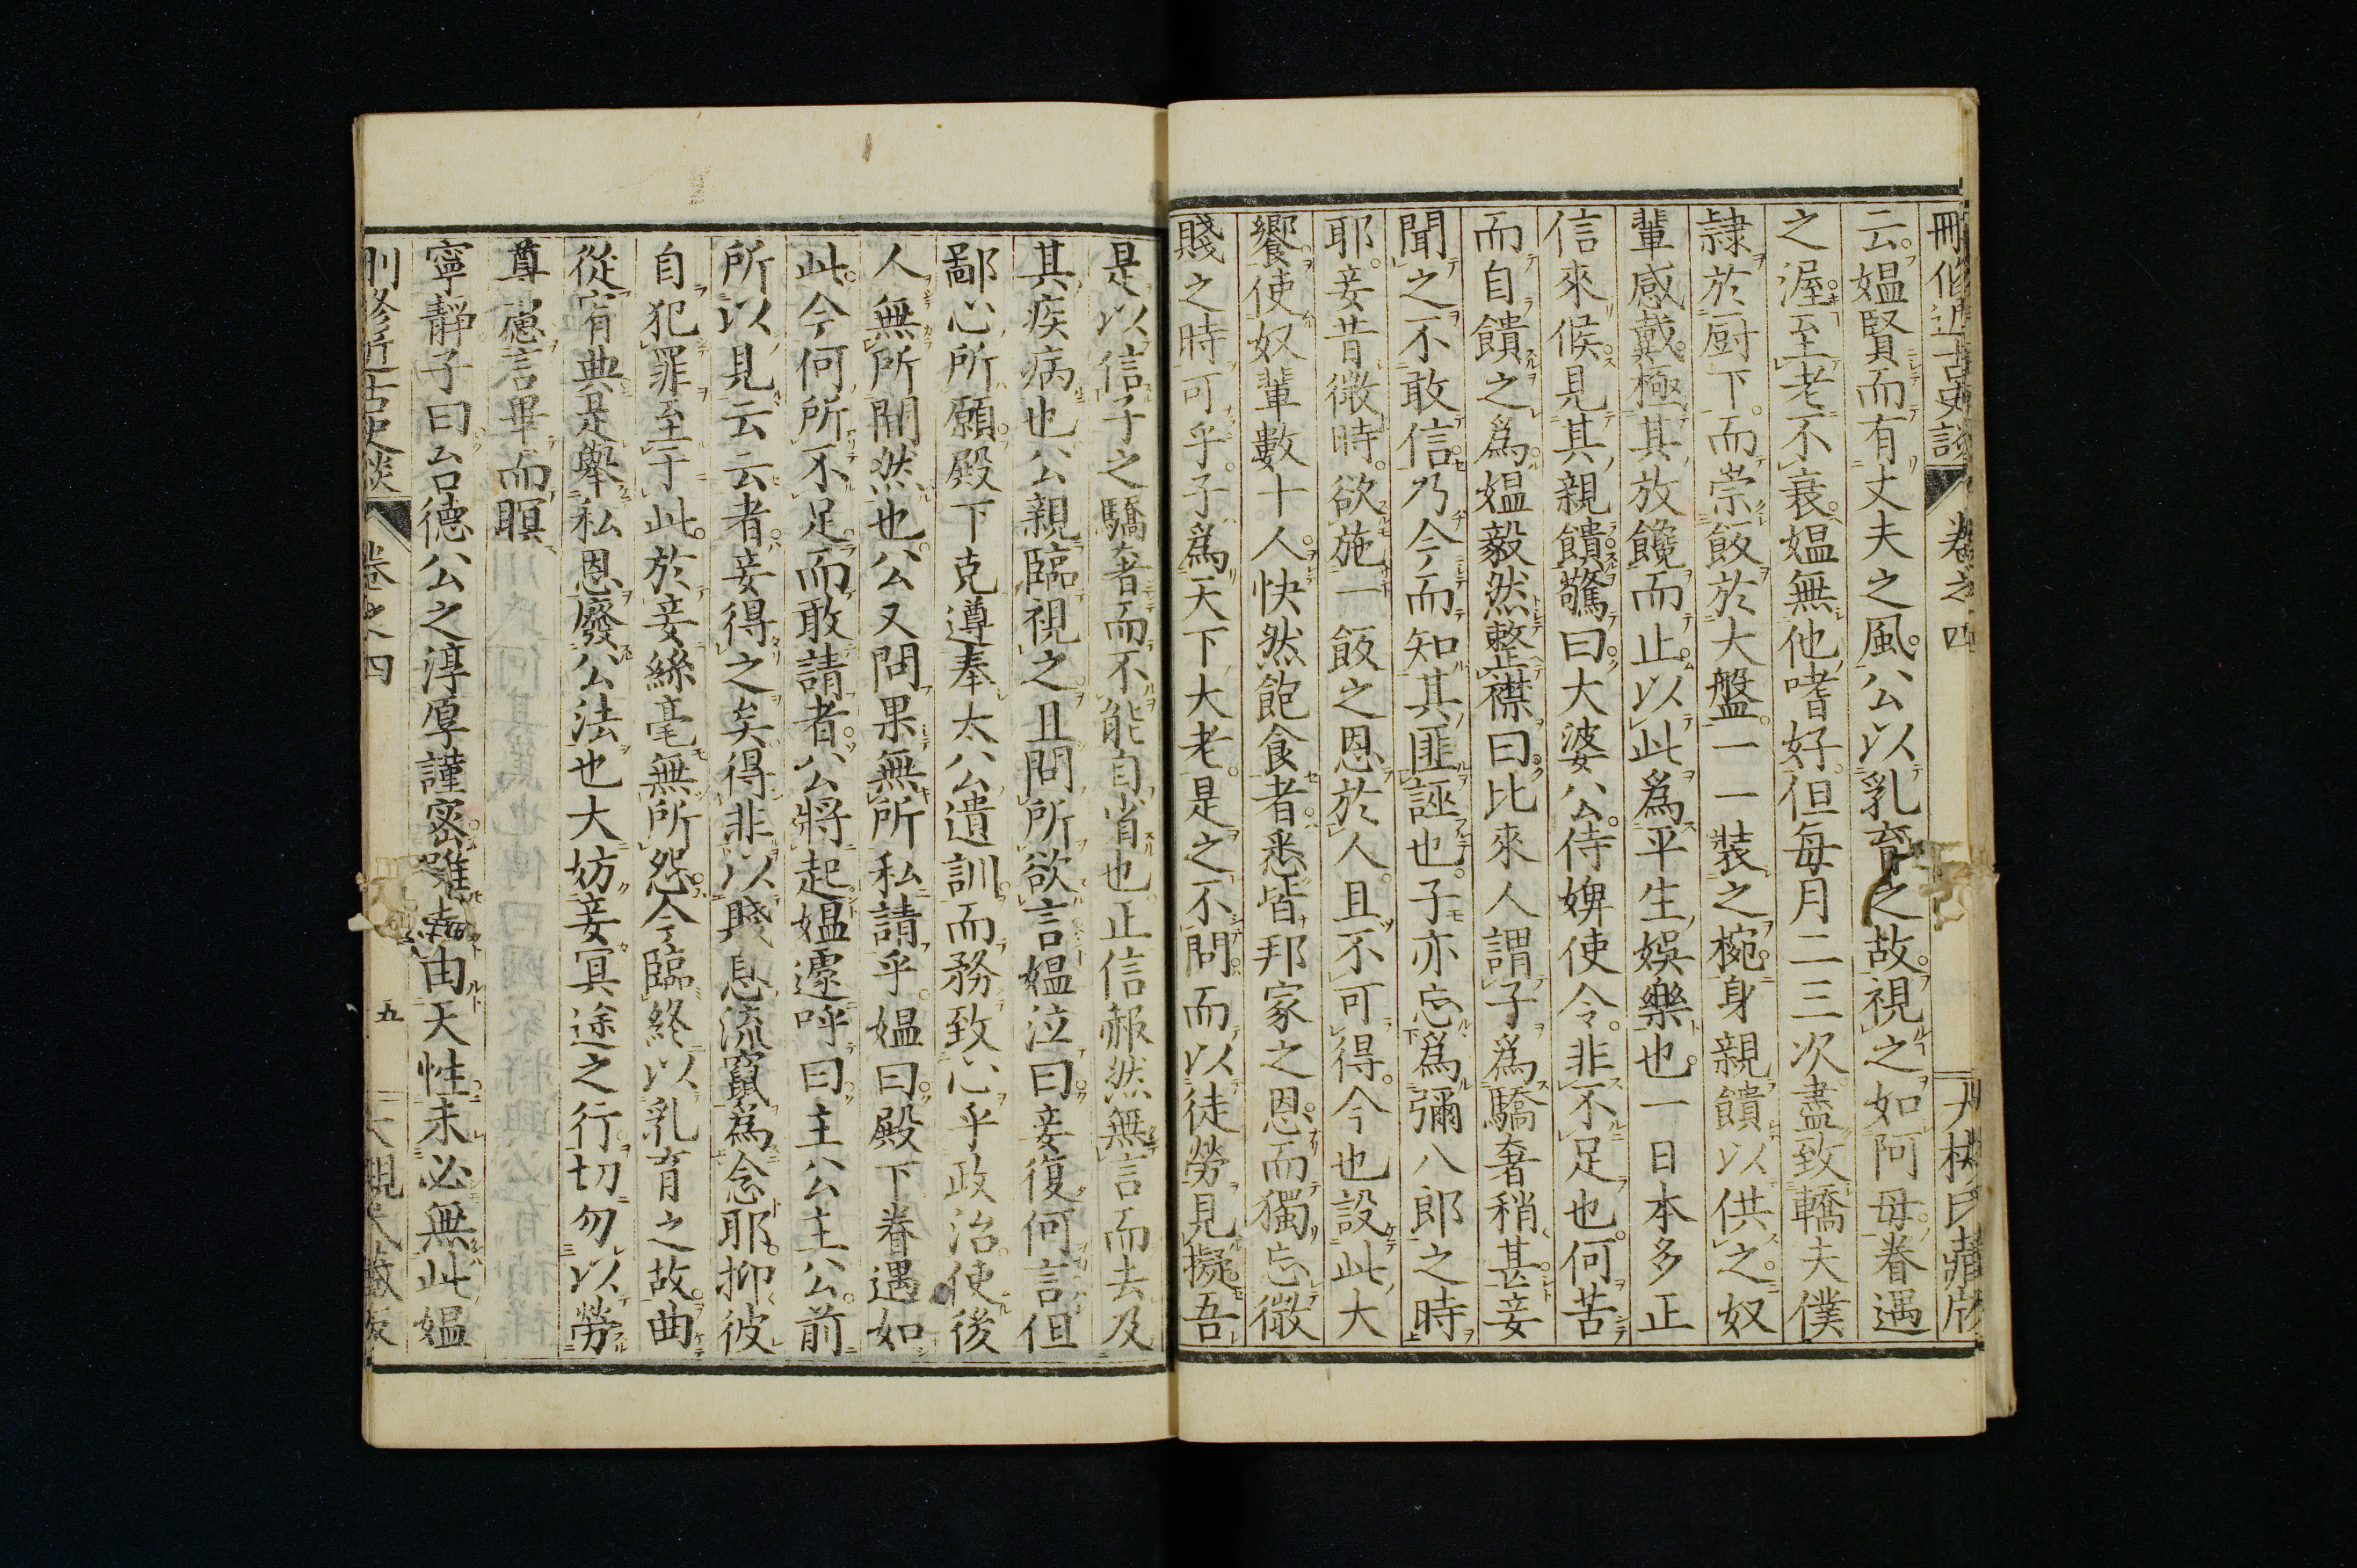 刪修近古史談 卷之四 大槻氏藏版
云媼賢而有丈夫之風公以乳育之故視之如阿母眷遇
之渥至老不衰媼無他嗜好但每月二三次盡致轎夫僕
隷於厨下而崇飯於大盤一一裝之椀身親饋以供之奴
輩感戴極其放饞而止以此爲平生娯樂也一日本多正
信來候見其親饋驚曰大婆公侍婢使令非不足也何苦
而自饋之爲媼毅然整襟曰比來人謂子爲驕奢稍甚妾
聞之不敢信乃今而知其匪誣也子亦忘爲彌八郎之時
耶妾昔微時欲施一飯之恩於人且不可得今也設此大
饗使奴輩數十人快然飽食者悉皆邦家之恩而獨忘微
賤之時可乎子爲天下大老是之不問而以徒勞見擬吾
是以信子之驕奢而不能自省也正信赧然無言而去及
其疾病也公親臨視之且問所欲言媼泣曰妾復何言但
鄙心所願殿下克遵奉太公遺訓而務致心乎政治使後
人無所間然也公又問果無所私請乎媼曰殿下眷遇如
此今何所不足而敢請者公將起媼遽呼曰主公主公前
所以見云云者妾得之矣得非以賤息流竄爲念耶抑彼
自犯罪至于此於妾絲毫無所怨今臨終以乳育之故曲
從宥典是擧私恩廢公法也大妨妾冥途之行切勿以勞
尊慮言畢而瞑
寧靜子曰台德公之淳厚謹密雖由天性未必無此媼
刪修近古史談 卷之四 五 大槻氏藏版